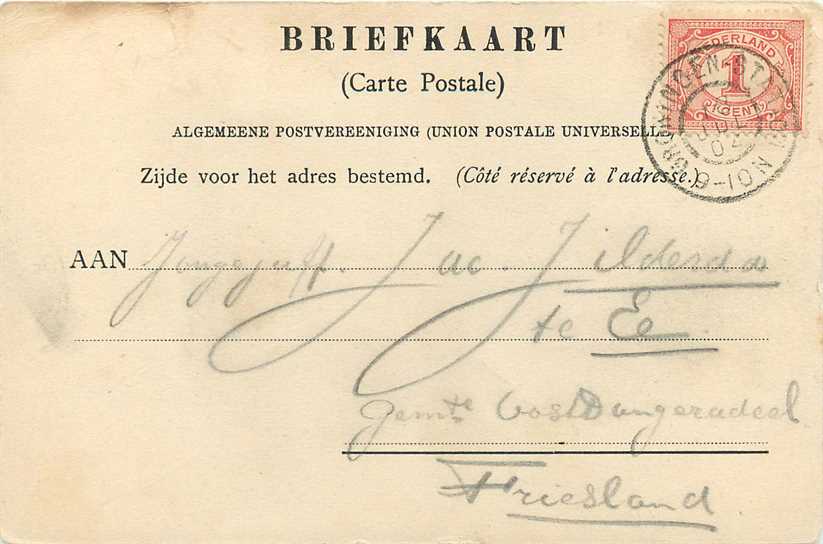 BRIEFKAART
(Carte Postale)
ALGEMEENE POSTVEREENIGING (UNION POSTALE UNIVERSELLE
Zijde voor het adres bestemd. (Côté réservé à l'adresse.)
NEDERLAND
1
CENT
GRONINGEN-STATION
JUL
02
8-10N
AAN Jongejuff. Jac. Jilderda
te Ee.
Gemte OostDongeradeel
Friesland